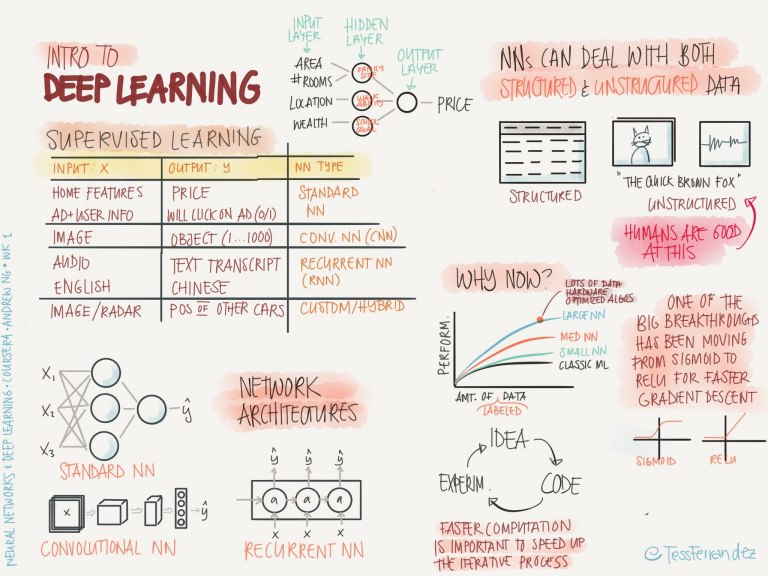 INTRO TO
DEEP LEARNING
INPUT LAYER
HIDDEN LAYER
OUTPUT LAYER
AREA
# ROOMS
LOCATION
WEALTH
FAMILY SIZE
SCHOOL QUAL
PRICE
SUPERVISED LEARNING
INPUT: X OUTPUT: Y NN TYPE
HOME FEATURES PRICE STANDARD
AD+USER INFO WILL CLICK ON AD (0/1) NN
IMAGE OBJECT (1...1000) CONV. NN (CNN)
AUDIO TEXT TRANSCRIPT RECURRENT NN
ENGLISH CHINESE (RNN)
IMAGE/RADAR POS OF OTHER CARS CUSTOM/HYBRID
NNs CAN DEAL WITH BOTH
STRUCTURED & UNSTRUCTURED DATA
STRUCTURED
"THE QUICK BROWN FOX"
UNSTRUCTURED
HUMANS ARE GOOD
AT THIS
WHY NOW?
LOTS OF DATA
HARDWARE
OPTIMIZED ALGOS
LARGE NN
MED NN
SMALL NN
CLASSIC ML
PERFORM.
AMT. OF DATA
LABELED
ONE OF THE
BIG BREAKTHROUGHS
HAS BEEN MOVING
FROM SIGMOID TO
RELU FOR FASTER
GRADIENT DESCENT
SIGMOID RELU
X1
X2
X3
ŷ
STANDARD NN
X
ŷ
CONVOLUTIONAL NN
NETWORK
ARCHITECTURES
ŷ ŷ ŷ
a a a
X X X
RECURRENT NN
IDEA
CODE
EXPERIM.
FASTER COMPUTATION
IS IMPORTANT TO SPEED UP
THE ITERATIVE PROCESS
@TessFerrandez
NEURAL NETWORKS & DEEP LEARNING • COURSERA • ANDREW NG • WK 1